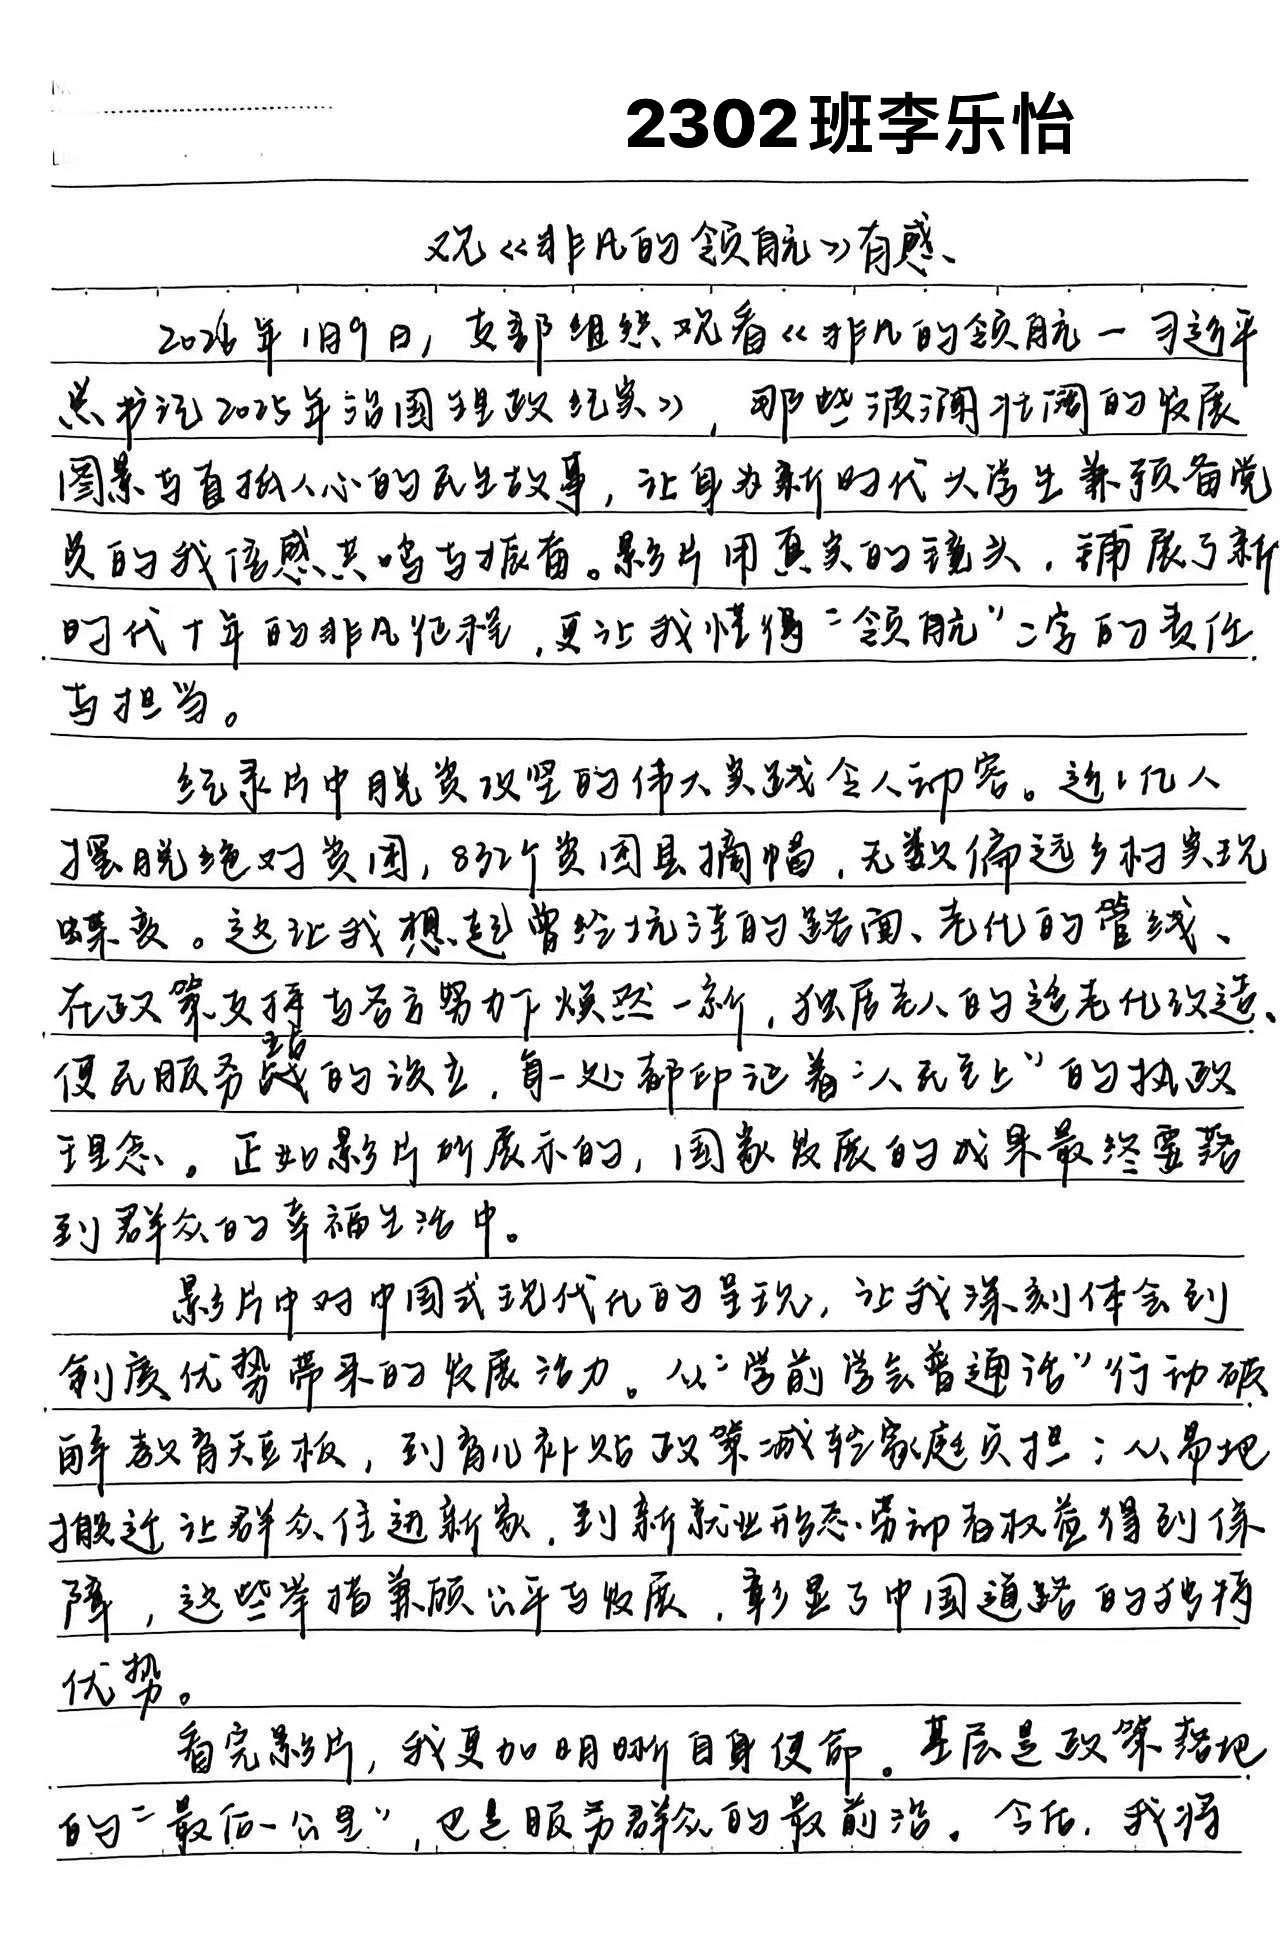 2302班李乐怡
观《非凡的领航》有感
2026年1月9日，支部组织观看《非凡的领航—习近平
总书记2025年治国理政纪实》，那些波澜壮阔的发展
图景与直抵人心的民生故事，让身为新时代大学生兼预备党
员的我倍感共鸣与振奋。影片用真实的镜头，铺展了新
时代十年的非凡征程，更让我懂得“领航”二字的责任
与担当。
纪录片中脱贫攻坚的伟大实践令人动容。近1亿人
摆脱绝对贫困，832个贫困县摘帽，无数偏远乡村实现
蝶变。这让我想起曾经坑洼的路面、老化的管线、
在政策支持与各方努力下焕然一新，独居老人的适老化改造、
便民服务站的设立，每一处都印证着“人民至上”的执政
理念。正如影片所展示的，国家发展的成果最终要落
到群众的幸福生活中。
影片中对中国式现代化的呈现，让我深刻体会到
制度优势带来的发展活力。从“学前学会普通话”行动破
解教育短板，到育儿补贴政策减轻家庭负担；从易地
搬迁让群众住进新家，到新就业形态劳动者权益得到保
障，这些举措兼顾公平与发展，彰显了中国道路的独特
优势。
看完影片，我更加明晰自身使命。基层是政策落地
的“最后一公里”，也是服务群众的最前沿。今后，我将